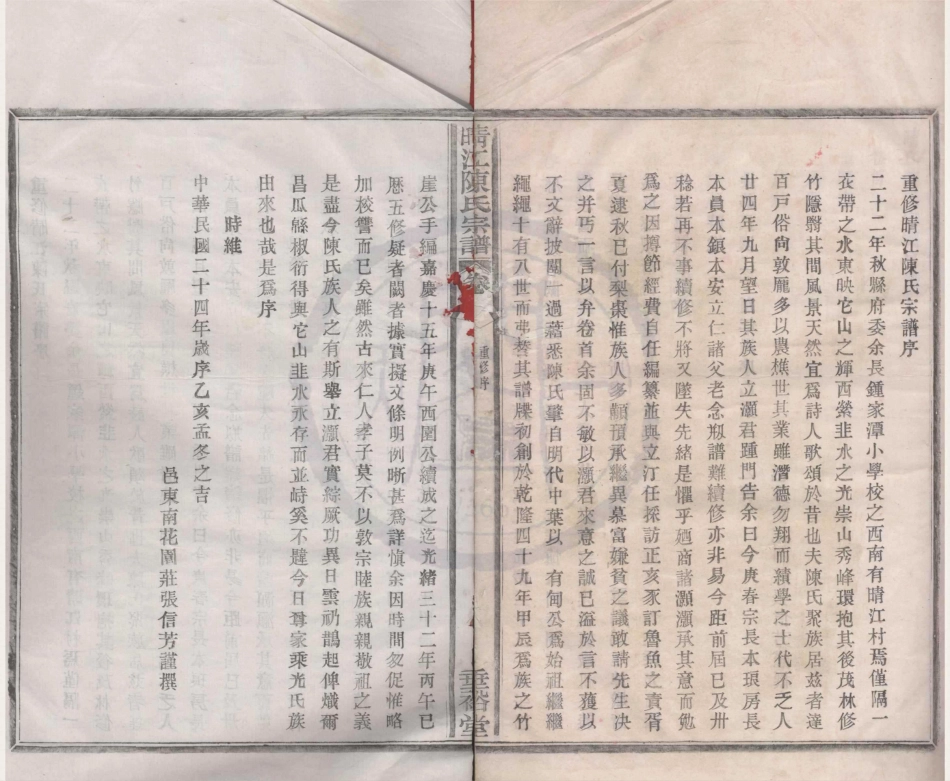 重修晴江陳氏宗譜序
二十二年秋縣府委余長鍾家潭小學校之西南有晴江村焉僅隔一
衣帶之水東映它山之輝西縈韭水之光崇山秀峰環抱其後茂林修
竹隱翳其間風景天然宜爲詩人歌頌於昔也夫陳氏聚族居茲者達
百戶俗向敦龐多以農樵世其業雖潛德勿翔而績學之士代不乏人
廿四年九月望日其族人立灝君踵門告余曰今庚春宗長本琅房長
本員本銀本安立仁諸父老念剏譜難續修亦非易今距前屆已及卅
稔若再不事續修不將又墜失先緒是懼乎廼商諸灝灝承其意而勉
爲之因撙節經費自任編纂並與立汀任採訪正亥豕訂魯魚之責胥
夏逮秋已付梨棗惟族人多顢頇承繼異慕富嫌貧之議敢請先生決
之并丐一言以弁卷首余固不敏以灝君來意之誠已溢於言不獲以
不文辭披閱一過藉悉陳氏肇自明代中葉以 有甸公爲始祖繼繼
繩繩十有八世而弗替其譜牒初創於乾隆四十九年甲辰爲族之竹
晴江陳氏宗譜
卷
重修序
堂
崖公手編嘉慶十五年庚午西園公續成之迄光緒三十二年丙午已
歷五修疑者闕者據實擬文條明例晰甚爲詳愼余因時間匆促惟略
加校讐而已矣雖然古來仁人孝子莫不以敦宗睦族親親敬祖之義
是盡今陳氏族人之有斯舉立灝君實綜厥功異日雲礽鵲起俾熾爾
昌瓜緜椒衍得與它山韭水永存而並峙奚不韙今日尊家乘光氏族
由來也哉是爲序
時維
中華民國二十四年歲序乙亥孟冬之吉
邑東南花園莊張信芳謹撰